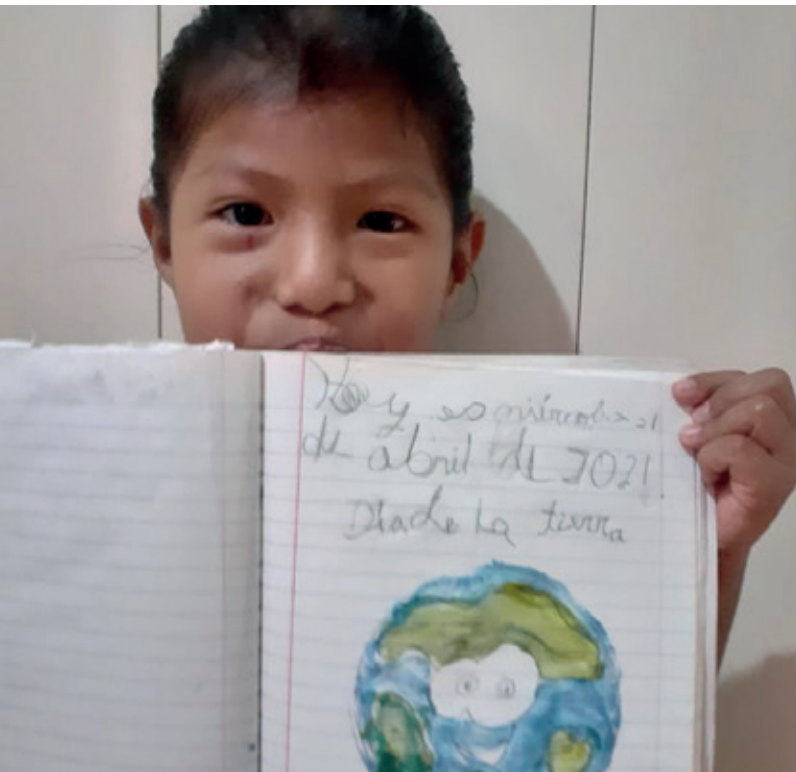 Hoy es miércoles 21
de abril de 2021.
Dia de La tierra